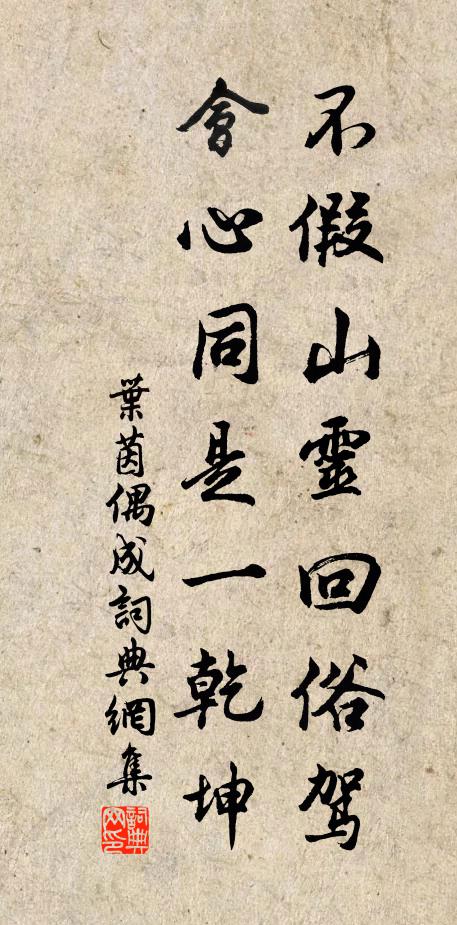 不假山靈回俗駕
會心同是一乾坤
葉茵偶成詞典網集
詞典网印